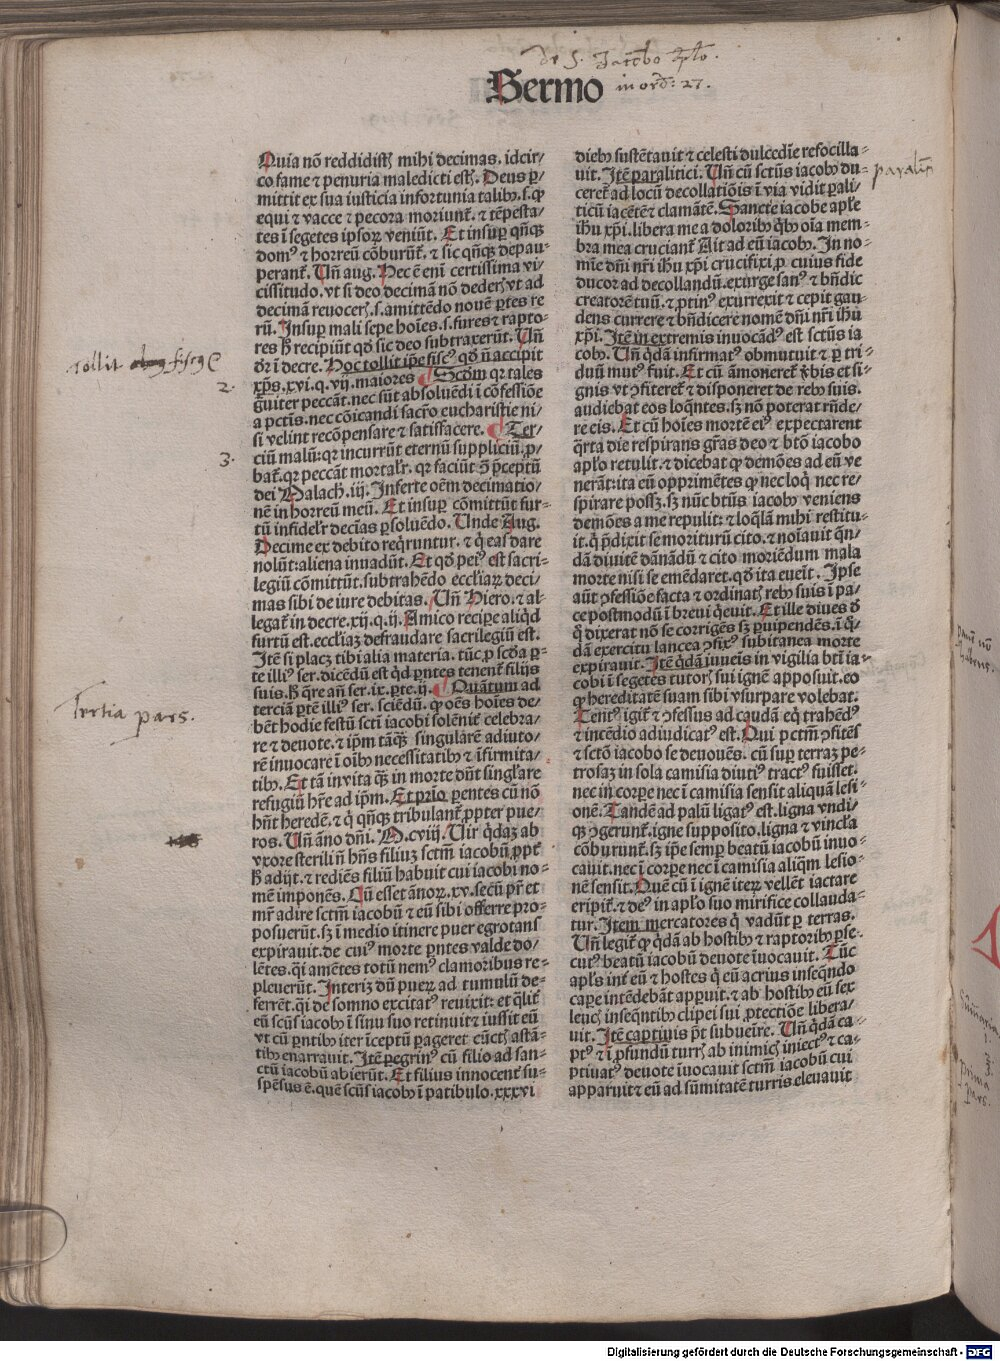 de S. Jacobo aplo.
Sermo in ord: 27.
Quia nō reddidistꝭ mihi decimas. idcir/
co fame ⁊ penuria maledicti estꝭ. Deus ꝑ/
mittit ex sua iusticia infortunia talibꝰ. s. ꝙ
equi ⁊ vacce ⁊ pecora moriunt̄. ⁊ tēpesta/
tes ī segetes ipsoꝝ veniūt. Et insuꝑ qn̄qꝫ
domꝰ ⁊ horreū cōburūt̄. ⁊ sic qn̄qꝫ depau/
perant̄. Un̄ aug. Hec ē em̄ certissima vi/
cissitudo. vt si deo decimā nō dederꝭ vt ad
decimā reuocerꝭ. s. amittēdo nouē ꝑtes re
rū. Insuꝑ mali sepe hoīes. s. fures ⁊ rapto/
res h̄ recipiūt qd̄ sic deo subtraxerūt. Un̄
dr̄ ī decre. Hoc tollit ip̄e fiscꝰ qd̄ n̄ accipit
xp̄s. xvi. q. vij. maiores Scd̄m qꝛ tales
grauiter peccāt. nec sūt absoluēdi ī cōfessiōe
a pctīs. nec cōicandi sacr̄o eucharistie ni/
si velint recōpensare ⁊ satisfacere. Ter/
ciū malū: qꝛ incurrūt eternū suppliciū. ꝓ/
bat̄. qꝛ peccāt mortalr̄. qꝛ faciūt ꝯ̄ p̄ceptū
dei Malach. iij. Inferte oēm decimatio/
nē in horreū meū. Et insuꝑ cōmittūt fur-
tū infidelr̄ decīas ꝑsoluēdo. Unde Aug.
Decime ex debito reqͥruntur. ⁊ qͥ eas dare
nolūt: aliena inuadūt. Et qd̄ peiꝰ est sacri-
legiū cōmittūt. subtrahēdo eccl̄iaꝝ deci/
mas sibi de iure debitas. Un̄ Hiero. ⁊ al-
legat̄ in decre. xij. q. ij. Amico recipe aliqͥd
furtū est. eccl̄iaꝫ defraudare sacrilegiū est.
Itē si placꝫ tibi alia materia. tūc ꝓ scd̄a ꝑ-
te illiꝰ ser. dicēdū est qd̄ ꝑntes tenent̄ filijs
suis. h̄ qͣre an̄ ser. ix. ꝑte. ij. Quātum ad
terciā ꝑtē illiꝰ ser. sciēdū. ꝙ oēs hoīes de/
bēt hodie festū scti iacobi solēnit̄ celebra/
re ⁊ deuote. ⁊ ip̄m tāqͣꝫ singularē adiuto/
rē inuocare ī oībꝰ necessitatibꝰ ⁊ īfirmita/
tibꝰ. Et tā in vita qͣꝫ in morte dn̄t singl̄are
refugiū hr̄e ad ip̄m. Et prīo ꝑentes cū nō
hn̄t heredē. ⁊ qͥ qn̄qꝫ tribulant̄ ꝓpter pue/
ros. Un̄ āno dn̄i. M. cviij. Uir qͥdaꝫ ab
vxore sterili n̄ hn̄s filiuꝫ sctm̄ iacobū ꝓpt̄
h̄ adijt. ⁊ rediēs filiū habuit cui iacobi no-
mē imponēs. Cū esset ānoꝝ. xv. secū pr̄ et
mr̄ adire sctm̄ iacobū ⁊ eū sibi offerre pro-
posuerūt. sꝫ ī medio itinere puer egrotans
expirauit. de cuiꝰ morte ꝑntes valde do/
lētes. qͥ amētes totū nemꝰ clamoribus re-
pleuerūt. Interīz dū pueꝝ ad tumulū de-
ferrēt. qͥ de somno excitatꝰ reuixit: et qͣlit̄
eū scūs iacobꝰ ī sinu suo retinuit ⁊ iussit eū
vt cū ꝑntibꝰ iter īceptū ꝑageret cūctꝭ astā-
tibꝰ enarrauit. Itē peregrinꝰ cū filio ad san-
ctū iacobū abierūt. Et filius innocent̄ su-
spēsus ē. quē scūs iacobꝰ ī patibulo. xxxvi
diebꝰ sustētauit ⁊ celesti dulcedīe refocilla-
uit. Itē paralitici. Un̄ cū sctūs iacobꝰ du-
ceret̄ ad locū decollatiōis ī via vidit ꝑali-
ticū iacētē ⁊ clamātē. Sancte iacobe apl̄e
ihū xp̄i. libera me a doloribꝰ qͥbꝰ oīa mem-
bra mea cruciant̄ Ait ad eū iacobꝰ. In no-
mīe dn̄i nr̄i ihū xp̄i crucifixi. ꝓ cuius fide
ducor ad decollandū. exurge sanꝰ ⁊ bn̄dic
creatorē tuū. ⁊ ꝓtinꝰ exurrexit ⁊ cepit gau-
dens currere ⁊ bn̄dicere nomē dn̄i nr̄i ihū
xp̄i. Itē in extremis inuocādꝰ est sctūs ia
cobꝰ. Un̄ qͥdā infirmatꝰ obmutuit ⁊ ꝑ tri-
duū mutꝰ fuit. Et cū āmoneret̄ v̄bis et si-
gnis vt ꝯfiteret̄ ⁊ disponeret de rebꝰ suis.
audiebat eos loqn̄tes. sꝫ nō poterat rn̄de/
re eis. Et cū hoīes mortē eiꝰ expectarent
qͣrta die respirans gr̄as deo ⁊ bt̄o iacobo
apl̄o retulit. ⁊ dicebat ꝙ demōes ad eū ve
nerāt: ita eū opprimētes ꝙ nec loqͥ nec re/
spirare possꝫ. sꝫ nūc bt̄us iacobꝰ veniens
demōes a me repulit: ⁊ loq̄lā mihi restitu-
it. qͥ p̄dixit se moriturū cito. ⁊ noīauit qn̄-
dā diuitē dānādū ⁊ cito moriēdum mala
morte nisi se emēdaret. qd̄ ita eueīt. Ip̄se
aūt ꝯfessiōe facta ⁊ ordinatꝭ rebꝰ suis ī pa/
ce postmodū ī breui qͥeuit. Et ille diues d̄
qͦ dixerat nō se corrigēs sꝫ ꝑuipendēs. ī qͦ-
dā exercitu lancea ꝯfixꝰ subitanea morte
expirauit. Itē qͥdā iuueīs in vigilia bt̄i ia-
cobi ī segetes tutorꝭ sui ignē apposuit. eo
ꝙ hereditatē suam sibi vsurpare volebat.
Tent̄ꝰ igit̄ ⁊ ꝯfessus ad caudā eqͥ trahēdꝰ
⁊ incēdio adiudicatꝰ est. Qui pctm̄ ꝯfitēs
⁊ sctō iacobo se deuouēs. cū suꝑ terraꝫ pe-
trosaꝫ in sola camisia diutiꝰ tractꝰ fuisset.
nec in corpe nec ī camisia sensit aliquā lesi-
onē. Tandē ad palū ligatꝰ est. ligna vndi/
qꝫ ꝯgerunt̄. igne supposito. ligna ⁊ vincl̄a
cōburunt̄. sꝫ ip̄e semꝑ beatū iacobū inuo/
cauit. nec ī corpe nec ī camisia aliqͣm lesio-
nē sensit. Quē cū ī ignē iteꝝ vellēt iactare
eripit̄. ⁊ deꝰ in apl̄o suo mirifice collauda-
tur. Item mercatores qͥ vadūt ꝑ terras.
Un̄ legit̄ ꝙ qͥdā ab hostibꝰ ⁊ raptoribꝰ ꝑse-
cutꝰ beatū iacobū deuote īuocauit. Tūc
apl̄s int̄ eū ⁊ hostes qͥ eū acrius inseqn̄do
caꝑe intēdebāt apparuit. ⁊ ab hostibꝰ eū sex
leucꝭ inseqn̄tibꝰ clipei sui ꝓtectiōe libera/
uit. Itē captiuis pt̄ subueīre. Un̄ qͥdā ca-
ptꝰ ⁊ ī ꝓfundū turrꝭ ab inimicꝭ iniectꝰ ⁊ ca-
ptiuatꝰ deuote īuocauit sctm̄ iacobū cui
apparuit ⁊ eū ad sūmitatē turris eleuauit
tollit fiscꝰ
2.
3.
Tertia pars.
paralitī
prima
pars.
Digitalisierung gefördert durch die Deutsche Forschungsgemeinschaft - DFG